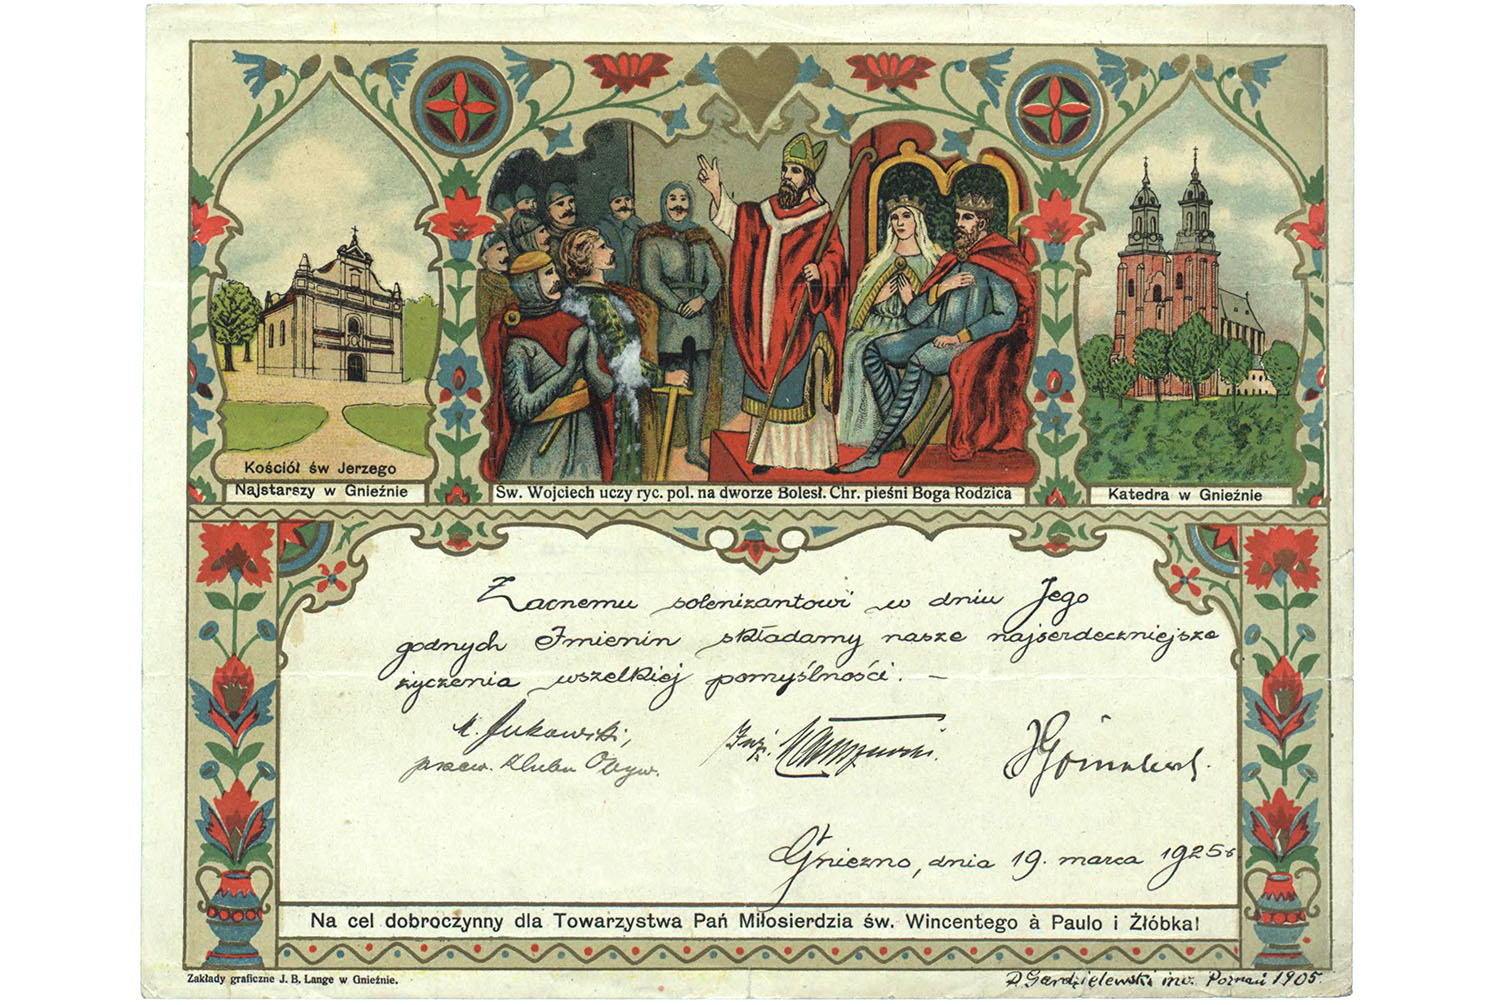 Kościół św Jerzego
Najstarszy w Gnieźnie
Św. Wojciech uczy ryc. pol. na dworze Bolesł. Chr. pieśni Boga Rodzica
Katedra w Gnieźnie
Zacnemu solenizantowi w dniu Jego
godnych Imienin składamy nasze najserdeczniejsze
życzenia wszelkiej pomyślności. –
Inż.
Gniezno, dnia 19. marca 1925 r.
Na cel dobroczynny dla Towarzystwa Pań Miłosierdzia św. Wincentego à Paulo i Żłóbka!
Zakłady graficzne J. B. Lange w Gnieźnie.
Gardzielewski inv. Poznań 1905.